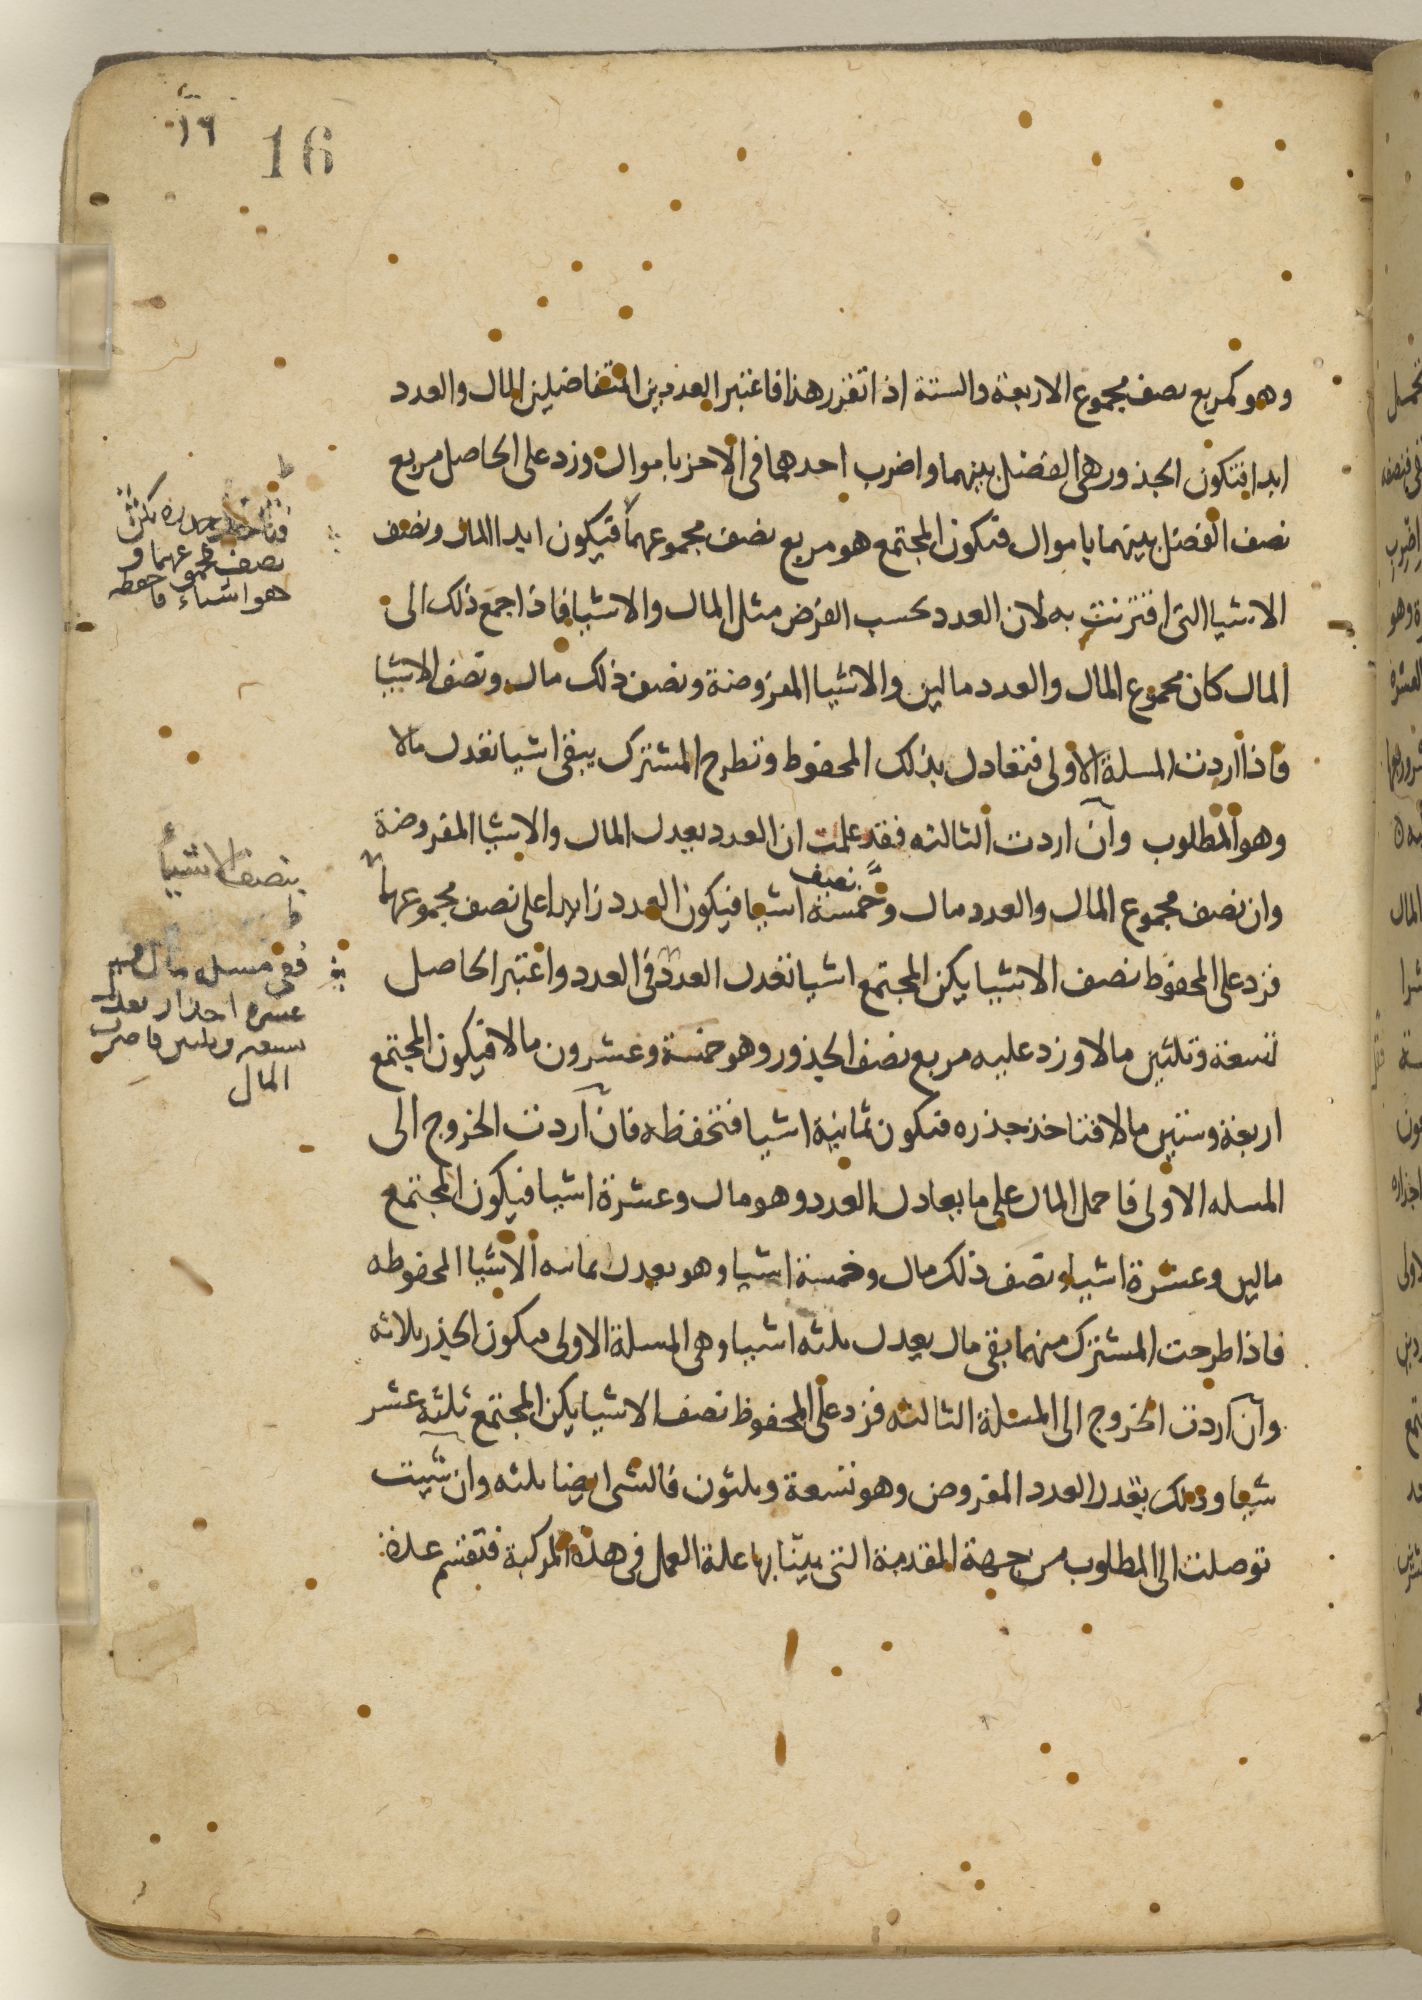 ١٦
16
وهو كمربع نصف مجموع الاربعة والستة اذا تقرر هذا فاعتبر العددين المتفاضلين المال والعدد
ابدا فتكون الجذور هى الفضل بينهما واضرب احدهما فى الاخر باموال وزد على الحاصل مربع
نصف الفضل بينهما باموال فتكون المجتمع هو مربع نصف مجموعهما فيكون ابدا المال ونصف
الاشيا التى اقترنت به لان العدد بحسب الفرض مثل المال والاشيا فاذا اجمع ذلك الى
المال كان مجموع المال والعدد مالين والاشيا المفروضة ونصف ذلك مال ونصف الاشيا
فاذا اردت المسلة الاولى فتعادل بذلك المحفوظ وتطرح المشترك يبقى اشيا تعدل مالا
وهو المطلوب وان اردت الثالثه فقد علمت ان العدد يعدل المال والاشيا المفروضة
وان نصف مجموع المال والعدد مال وخمسة اشيا فيكون العدد زايدا على نصف مجموعهما
نصف
فزد على المحفوظ نصف الاشيا يكن المجتمع اشيا تعدل العدد فى العدد واعتبر الحاصل
تسعة وثلثين مالا وزد عليه مربع نصف الجذور وهو خمسة وعشرون مالا فيكون المجتمع
اربعة وستين مالا فتاخذ جذره فتكون ثمانية اشيا فتحفظه فان اردت الخروج الى
المسله الاولى فاحمل المال على ما يعادل العدد وهو مال وعشرة اشيا فيكون المجتمع
مالين وعشرة اشيا ونصف ذلك مال وخمسة اشيا وهو يعدل ثمانيه الاشيا المحفوظه
فاذا طرحت المشترك منهما بقى مال يعدل ثلثه اشيا وهى المسلة الاولى فيكون الجذر ثلاثه
وان اردت الخروج الى المسلة الثالثه فزد على المحفوظ نصف الاشيا يكن المجتمع ثلثه عشر
شيا وذلك بقدر العدد المفروض وهو تسعة وثلثون فالشى ايضا ثلثه وان شيت
توصلت الى المطلوب من جهة المقدمة التى بينا بها علة العمل فى هذه المركبة فتقسم عدة
فتاخذ جذره يكن
نصف مجموعهما و
هو اشياء فاحفظه
بنصف الاشيا
ففى مسله مال و
عشرة اجذار تعدل
تسعه وثلثين فاضرب
المال